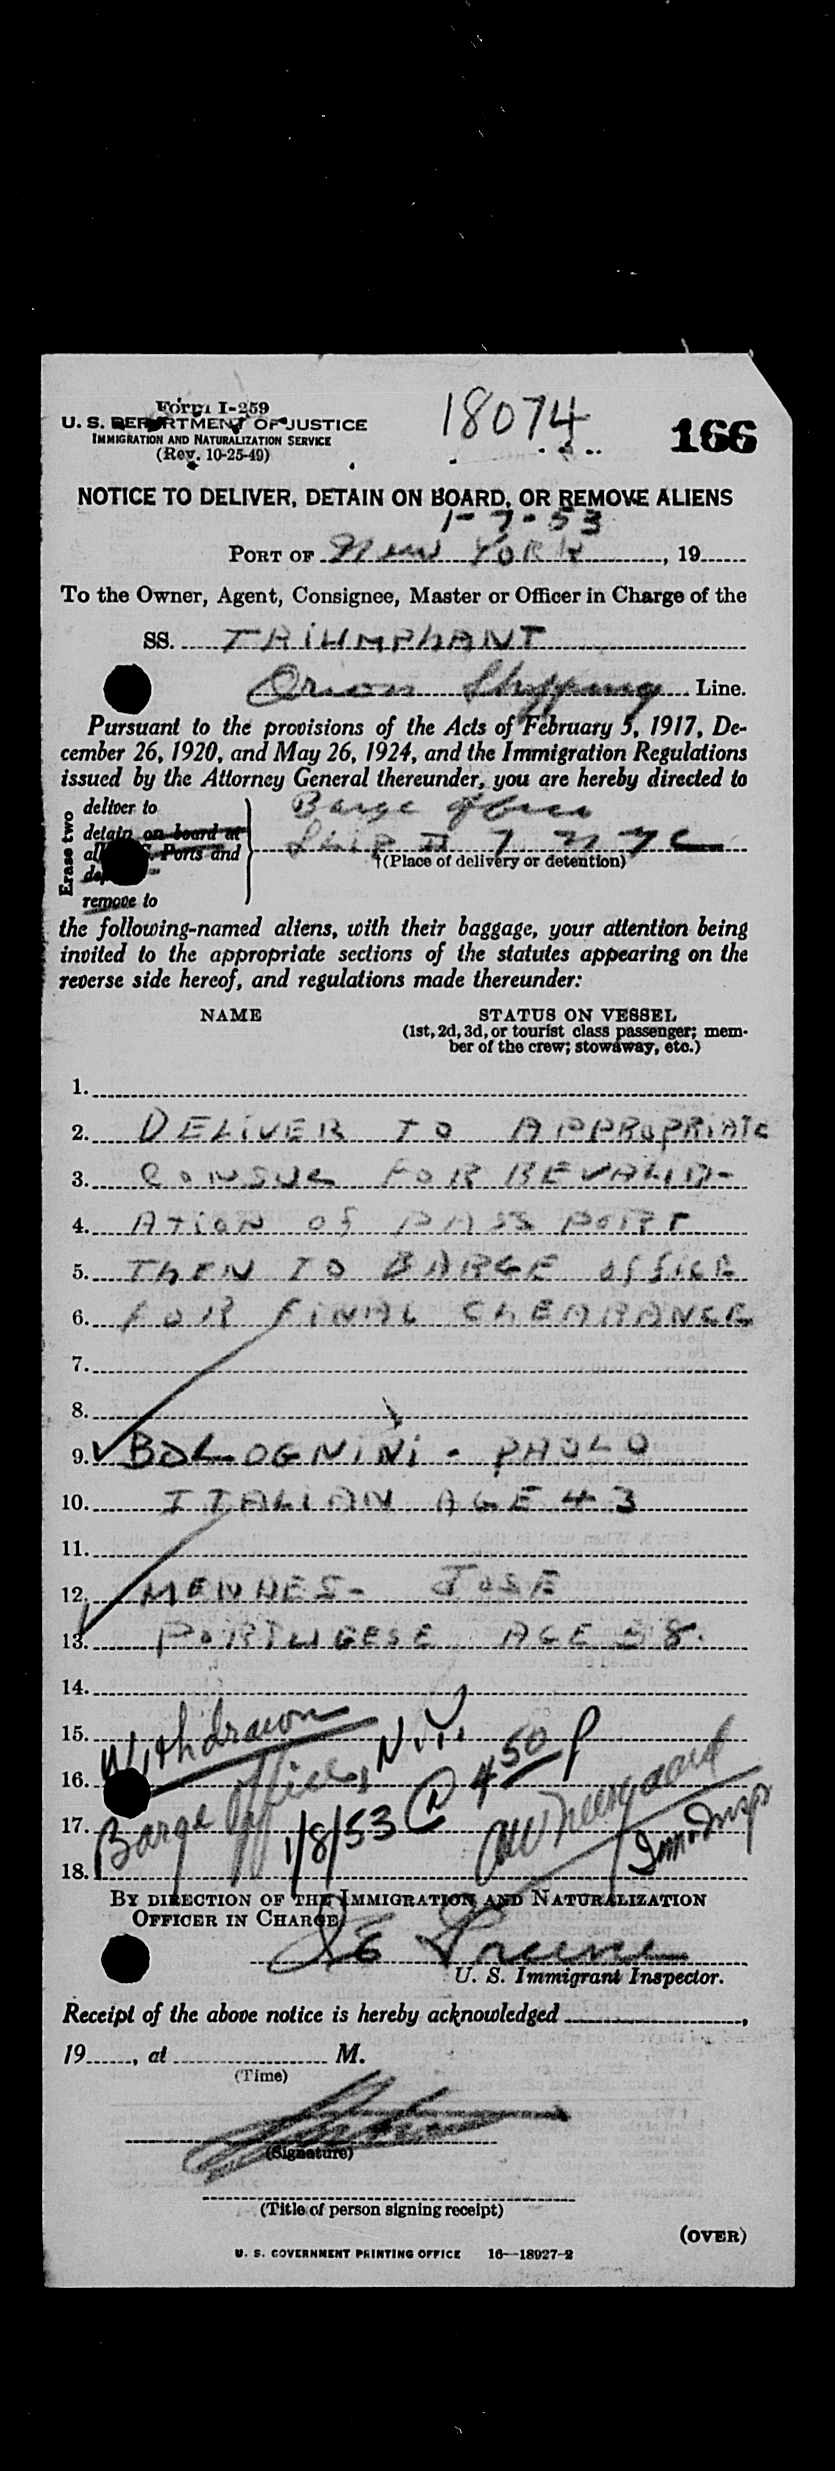 Form I-259
U. S. DEPARTMENT OF JUSTICE
IMMIGRATION AND NATURALIZATION SERVICE
(Rev. 10-25-49)
18074
166
NOTICE TO DELIVER, DETAIN ON BOARD, OR REMOVE ALIENS
1-7-53
PORT OF New YORK, 19
To the Owner, Agent, Consignee, Master or Officer in Charge of the
SS. TRIUMPHANT
Orion Shipping Line.
Pursuant to the provisions of the Acts of February 5, 1917, De-
cember 26, 1920, and May 26, 1924, and the Immigration Regulations
issued by the Attorney General thereunder, you are hereby directed to
Erase two
deliver to
detain on board at
all Ports and
remove to
Barge office
SLIP # 7 N Y C
†(Place of delivery or detention)
the following-named aliens, with their baggage, your attention being
invited to the appropriate sections of the statutes appearing on the
reverse side hereof, and regulations made thereunder:
NAME STATUS ON VESSEL
(1st, 2d, 3d, or tourist class passenger; mem-
ber of the crew; stowaway, etc.)
1.
2. DELIVER TO APPROPRIATE
3. CONSUL FOR REVALID-
4. ATION OF PASSPORT
5. THEN TO BARGE OFFICE
6. FOR FINAL CLEARANCE
7.
8.
9. BOLOGNINI - PAOLO
10. ITALIAN AGE 43
11.
12. MENDES - JOSE
13. PORTUGESE AGE 38.
14.
15. Withdrawn
16. Barge Office, N.Y.
17. 1/8/53 @ 4 50 P
Imm. Insp
18.
BY DIRECTION OF THE IMMIGRATION AND NATURALIZATION
OFFICER IN CHARGE
U. S. Immigrant Inspector.
Receipt of the above notice is hereby acknowledged ,
19 , at M.
(Time)
(Signature)
(Title of person signing receipt)
(OVER)
U. S. GOVERNMENT PRINTING OFFICE 16—18927-2